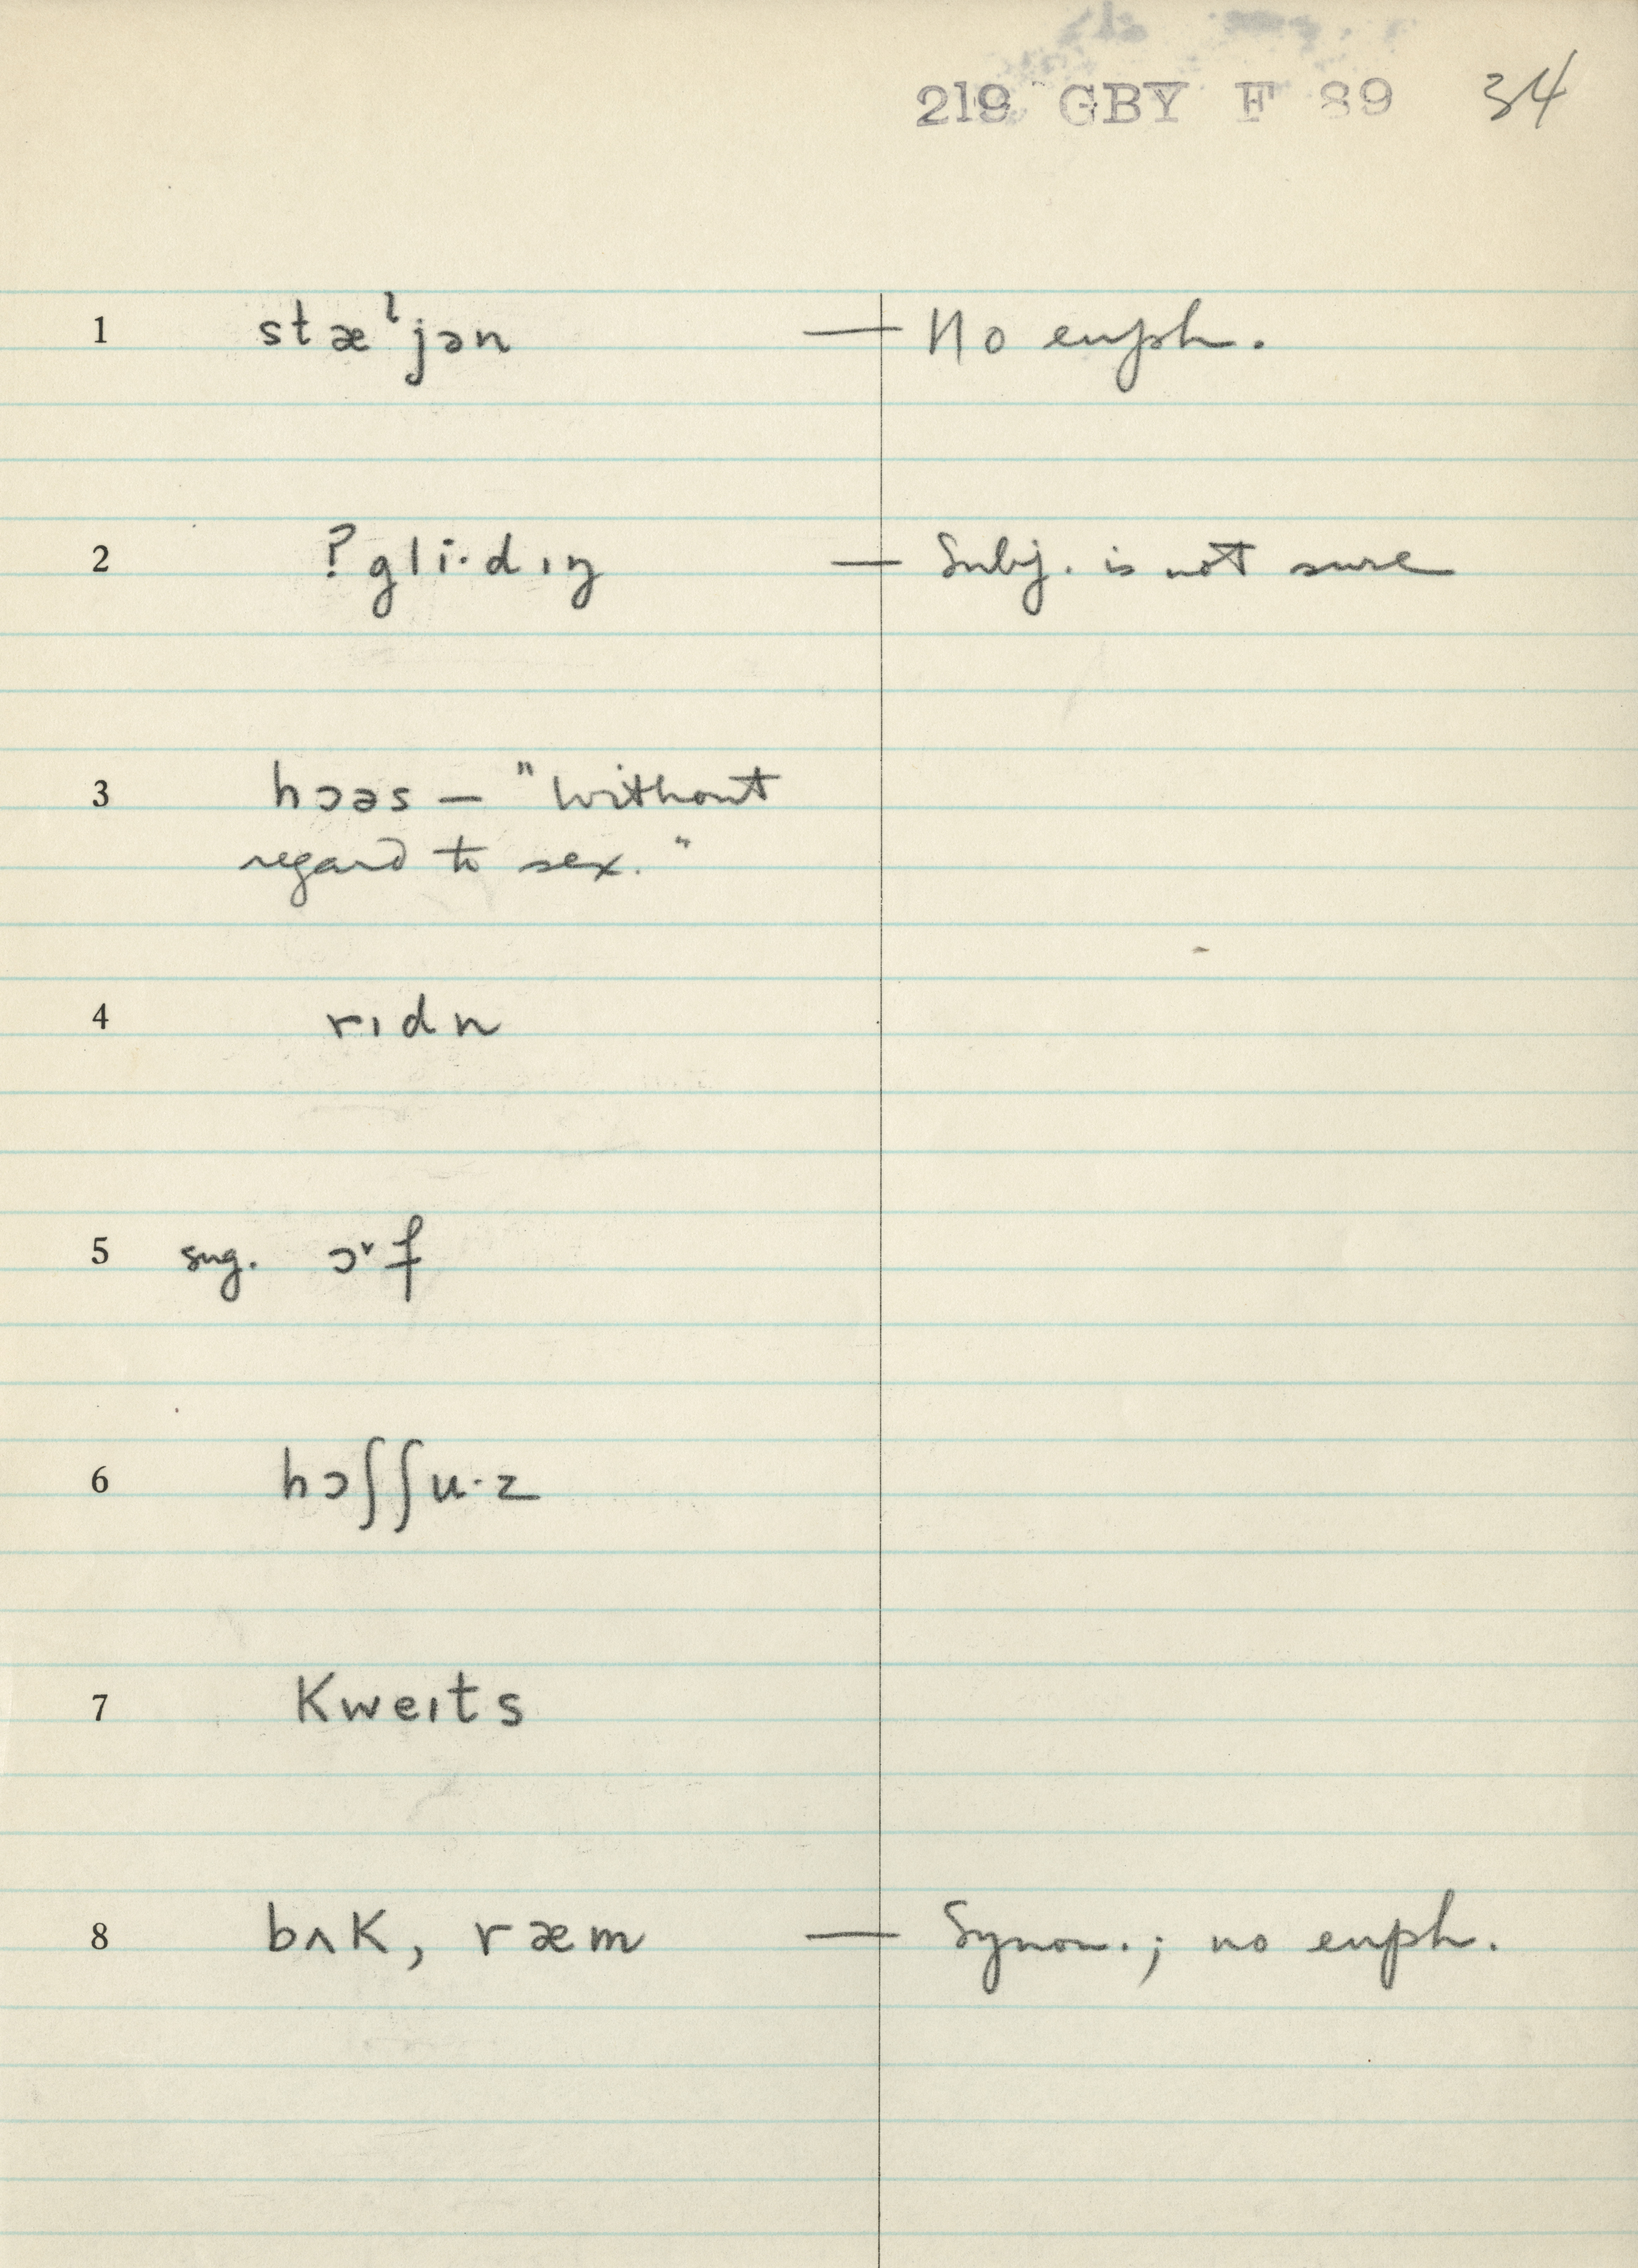 219 GBY F 89 34
1 stæˡjən — No euph.
2 ? gli·dɪŋ — Subj. is not sure
3 hɔəs — "Without
regard to sex."
4 rɪdn
5 sug. ɔ˅f
6 hɔʃʃu·z
7 Kweɪts
8 bʌK, ræm — Synon.; no euph.